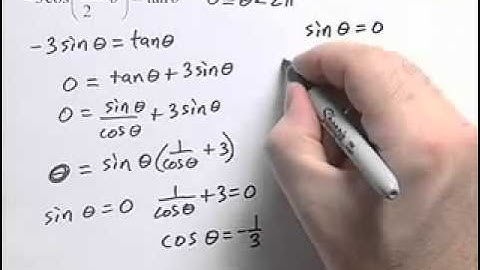 cos(π/2 - θ) = tanθ    0 ≤ θ < 2π
-3sinθ = tanθ
0 = tanθ + 3sinθ
0 = sinθ/cosθ + 3sinθ
0 = sinθ(1/cosθ + 3)
sinθ = 0    1/cosθ + 3 = 0
cosθ = -1/3
sinθ = 0